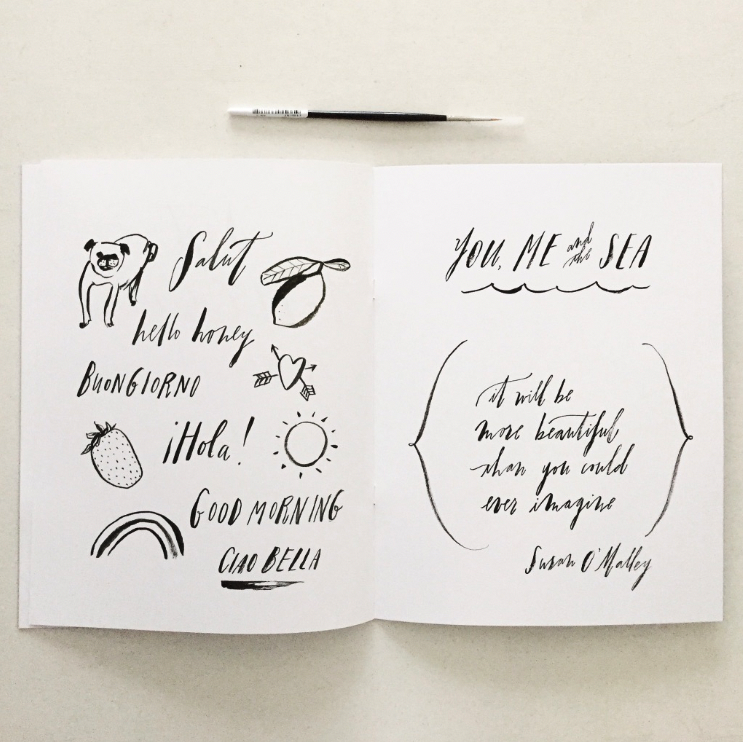 Salut
hello honey
BUONGIORNO
¡Hola!
GOOD MORNING
CIAO BELLA
YOU, ME and the SEA
it will be
more beautiful
than you could
ever imagine
Susan O'Malley